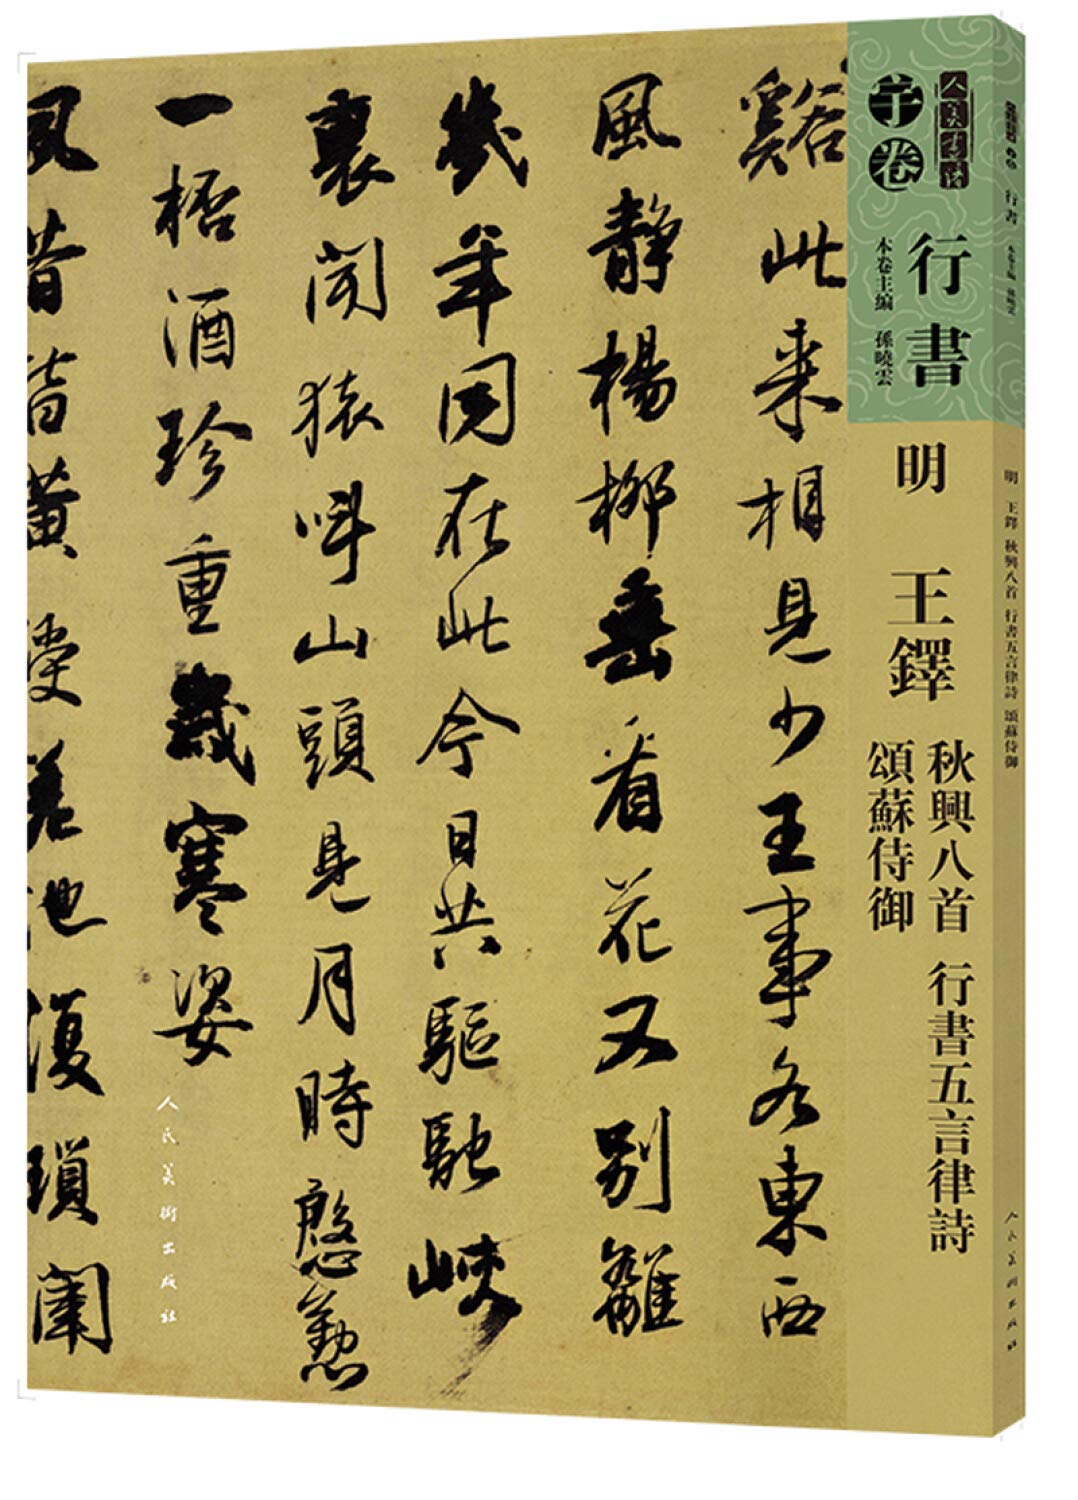 人美書譜
宇卷
行書
本卷主編 孫曉雲
明 王鐸
秋興八首 行書五言律詩
頌蘇侍御
谿此来相見少王事各東西
風靜楊柳垂看花又別離
幾年同在此今日共驅馳峽
裏聞猿叫山頭見月時慇懃
一桮酒珍重歲寒姿
昔皆黃差池復瑣闈
人民美術出版社
行書 本卷主編 孫曉雲
明 王鐸 秋興八首 行書五言律詩 頌蘇侍御
人民美術出版社